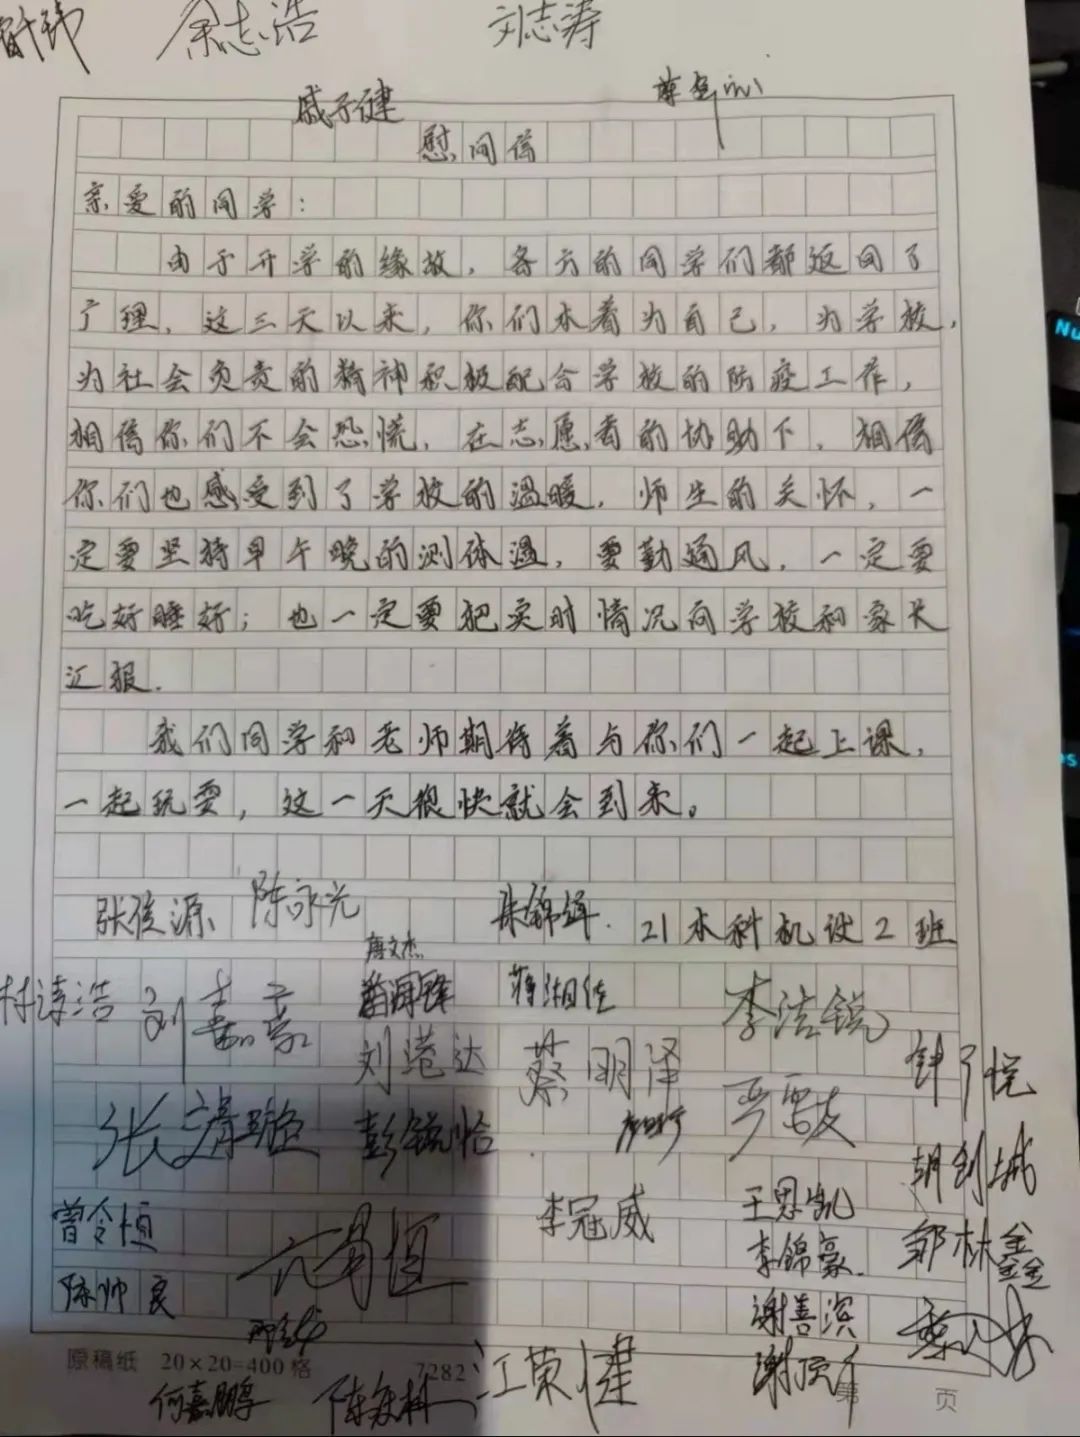 余志浩 刘志涛
戚子健
慰问信
亲爱的同学：
由于开学的缘故，各方的同学们都返回了
广理，这三天以来，你们本着为自己，为学校，
为社会负责的精神积极配合学校的防疫工作，
相信你们不会恐慌，在志愿者的协助下，相信
你们也感受到了学校的温暖，师生的关怀，一
定要坚持早午晚的测体温，要勤通风，一定要
吃好睡好；也一定要把实时情况向学校和家长
汇报.
我们同学和老师期待着与你们一起上课，
一起玩耍，这一天很快就会到来。
张俊源 陈永光 朱锦辉. 21本科机设2班
唐文杰
林淳浩 刘嘉豪 李洁锐
刘港达 蔡明泽
彭锐怡
胡创城
曾令恒 李冠威 王恩凯
李锦豪. 邹林鑫
陈帅良 谢善滨
原稿纸 20×20=400格 7282 江荣健 第 页
何嘉鹏